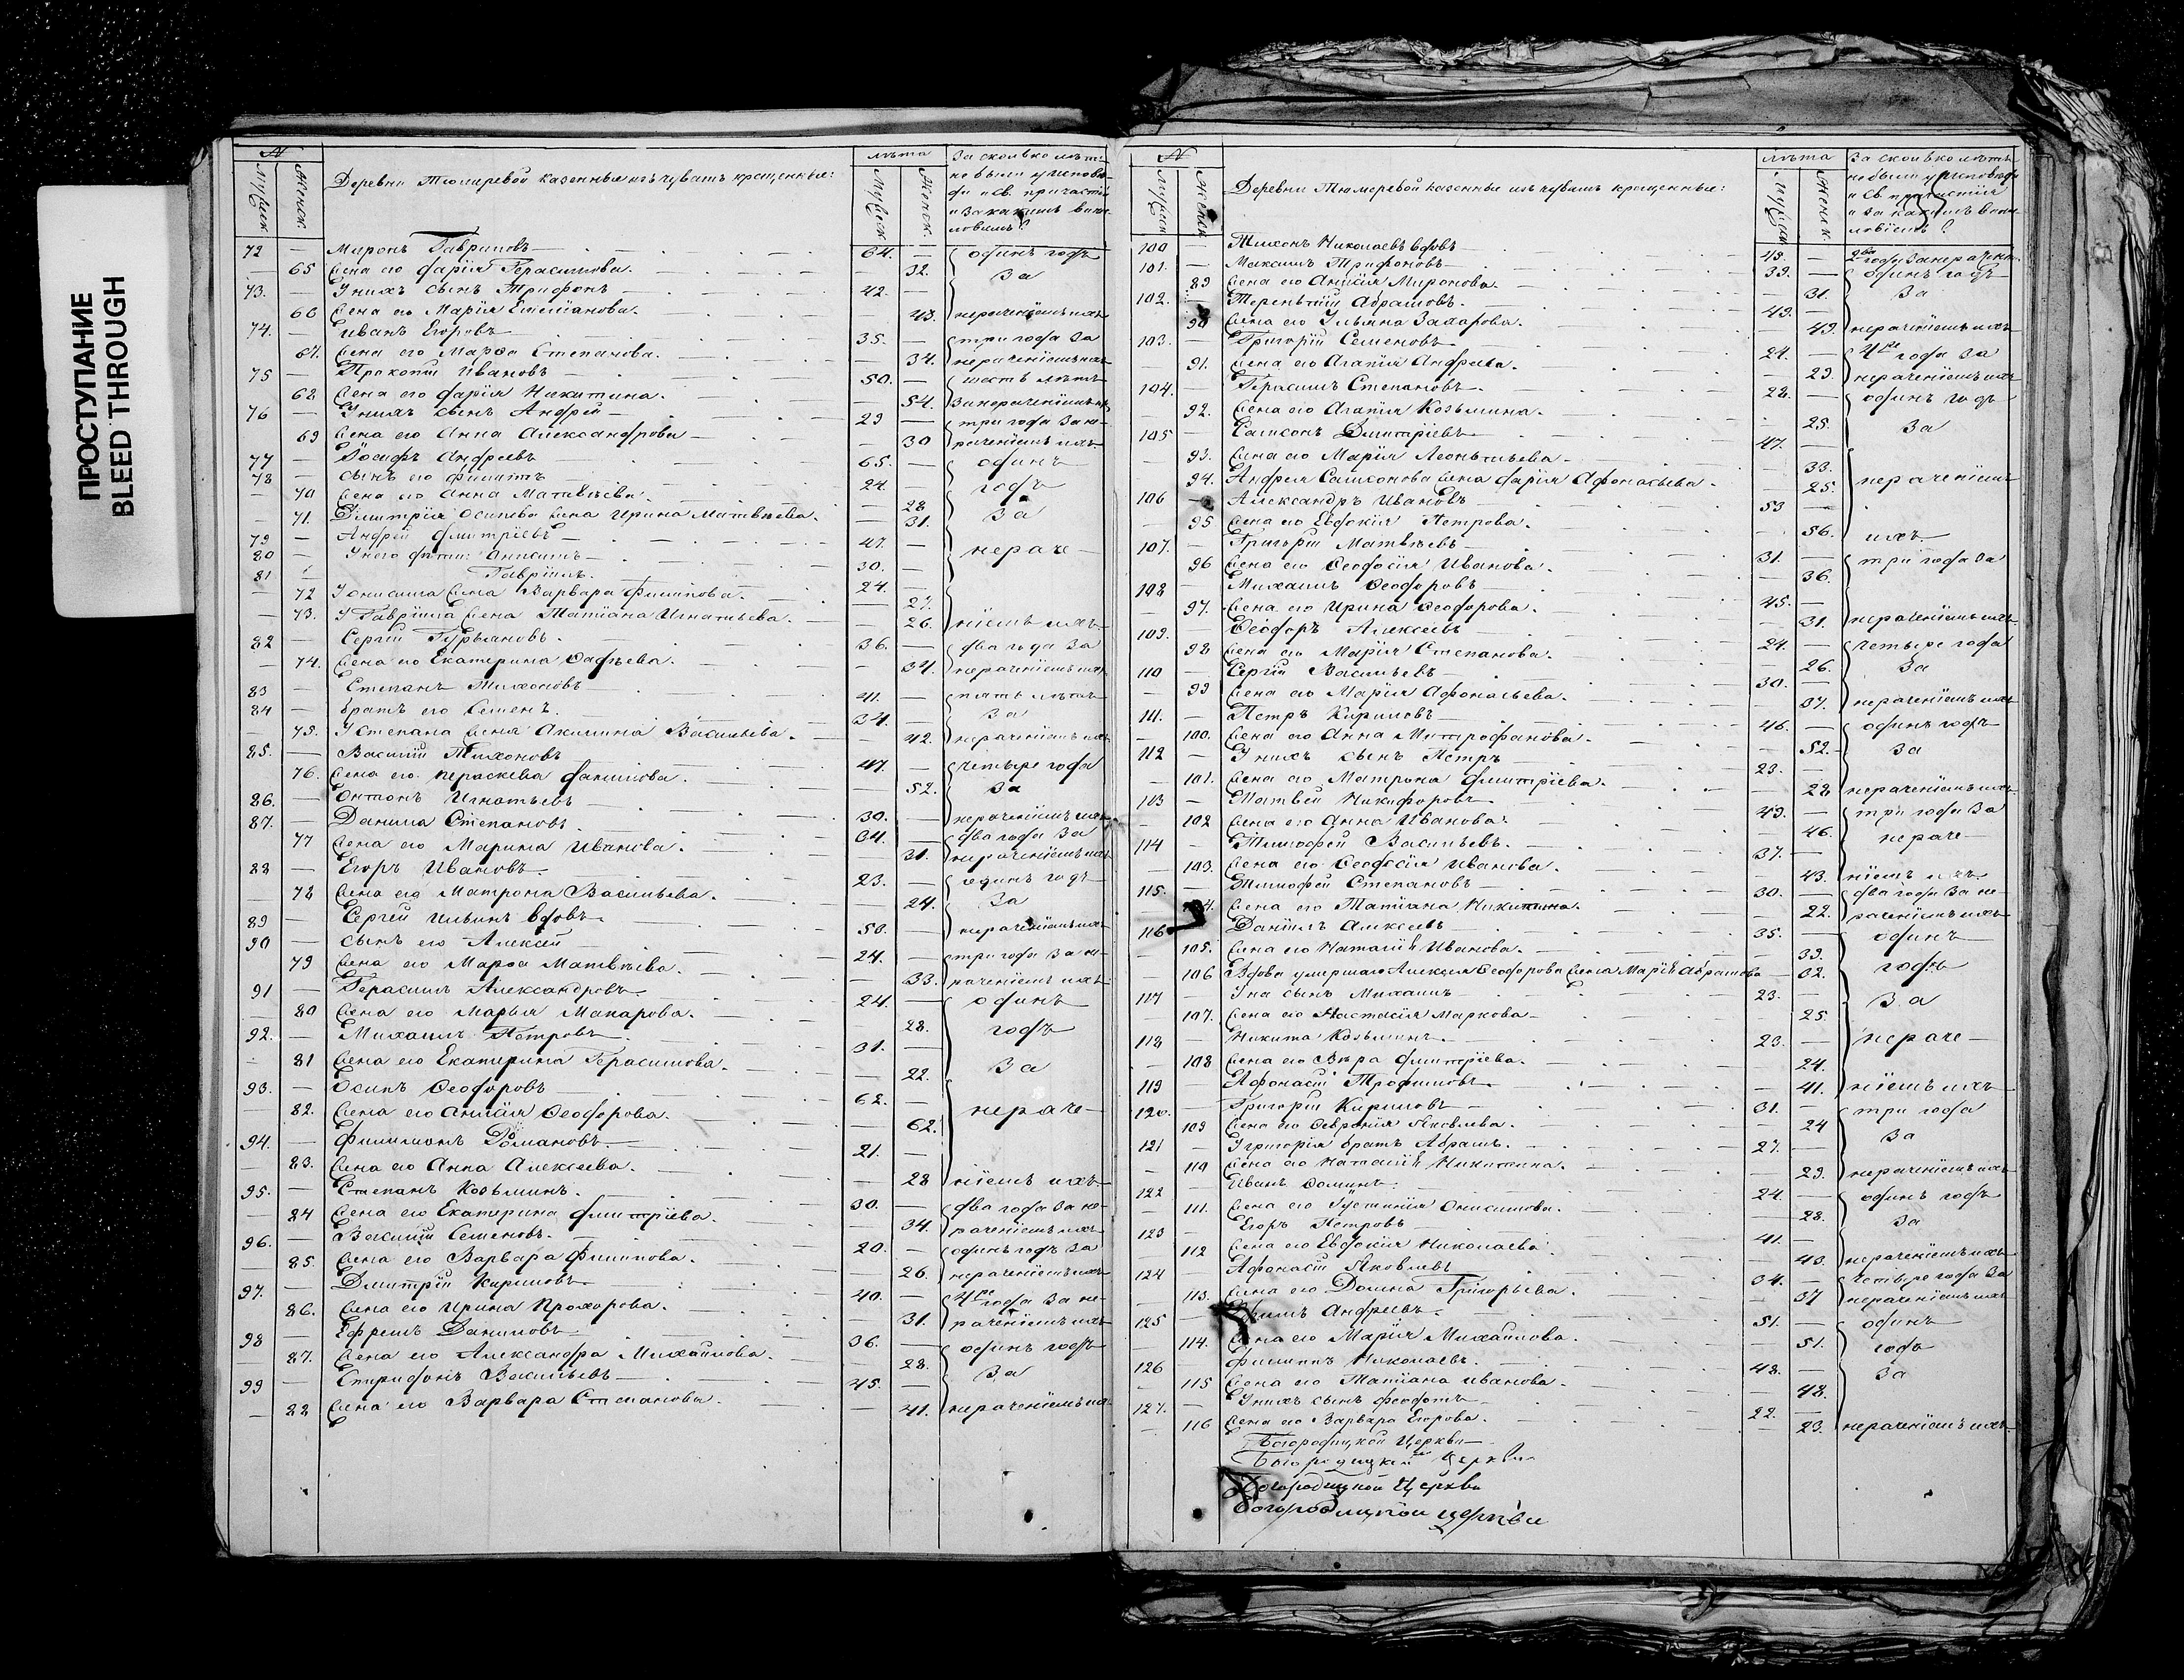 ПРОСТУПАНИЕ
BLEED THROUGH
№
Мужск
Женск.
Деревни Тюмеревой казенные изъ чувашъ крещенные:
лѣта
Мужеск
Женск.
За сколько лѣтъ
не были у исповѣ-
ди и Св. причастія
и за какимъ вино-
72 — Миронъ Гавриловъ — 64. — одинъ годъ
— 65 Жена его Дарія Герасимова. — 32. за
73. — У нихъ сынъ Трифонъ — 42. —
60 Жена его Марія Степанова. — 43. нераченіемъ ихъ
74. — Иванъ Егоровъ — 35. — три года за
67. Жена его Марѳа Степанова. — 34. нераченіемъ ихъ
75 — Прокопій Ивановъ — 50. — шесть лѣтъ
62 Жена его Дарія Никитина. — 54. за нераченіемъ их
76 — У нихъ сынъ Андрей — 29 — три года за не-
69 Жена его Анна Александрова — 30 раченіемъ ихъ
77 — Іосифъ Андреевъ 65. — одинъ
78 — сынъ его Филиппъ 24. — годъ
— 70 Жена его Анна Матвѣева. — 28 за
— 71. Дмитрія Осипова жена Ирина Матвѣева. — 31.
79 — Андрей Дмитріевъ — 47. — нераче-
80 — У него дѣти: Анисимъ — 30. —
81 — Гавріилъ. 24. —
— 72 У Онисима жена Варвара Филипова. — 27.
— 73. У Гавріила жена Татіана Игнатьева. — 26. ніемъ ихъ
82 — Сергій Гурьяновъ. 36. — два года за
— 74. Жена его Екатерина Фадѣева. — 34. нераченіемъ ихъ
83 — Степанъ Тихоновъ 41. — пять лѣтъ
84 — братъ его Семенъ. 34. — за
— 75. У Степана жена Акилина Васильева. — 42. нераченіемъ ихъ
85. — Василій Тихоновъ 47. — четыре года
76. Жена его Параскева Данилова. — 52. за
86. — Антонъ Игнатьевъ 30. — нераченіемъ ихъ
87. — Данила Степановъ 34. — два года за
77 Жена его Марина Иванова. — 31. нераченіемъ ихъ
88 — Егоръ Ивановъ. — 23. — одинъ годъ
78 Жена его Матрона Васильева. — 24. за
89 — Сергей Ильинъ вдовъ. 50. — нераченіемъ ихъ
90 — сынъ его Алексей 24. — три года за не-
79 Жена его Марѳа Матвѣева. — 33. раченіемъ ихъ
91 — Герасимъ Александровъ — 24. — одинъ
— 80 Жена его Марья Макарова. — 28. годъ
92. — Михаилъ Петровъ — 31. —
— 81 Жена его Екатерина Герасимова. — 22. за
93. — Осипъ Ѳеодоровъ 62. —
— 82. Жена его Анисія Ѳеодорова. — 62. нераче-
94. — Филимонъ Романовъ. — 21. —
— 83. Жена его Анна Алексеева. — 28 ніемъ ихъ
95. — Степанъ Козьминъ. 30. — два года за не-
— 84 Жена его Екатерина Дмитріева. — 34. раченіемъ ихъ
96. — Василій Семеновъ. — 20. — одинъ годъ за
— 85. Жена его Варвара Филипова. — 26. нераченіемъ ихъ
97. — Дмитрій Кириловъ — 40. — 4ре года за не-
— 86. Жена его Ирина Прохорова. — 31. раченіемъ ихъ
98 — Ефремъ Даниловъ — 36. — одинъ годъ
— 87. Жена его Александра Михайлова. — 28. за
99 — Спиридонъ Васильевъ — 45. —
— 88 Жена его Варвара Степанова. — 41. нераченіемъ их
№
Мужск
Женск
Деревни Тюмеревой казенные изъ чувашъ крещенные:
лѣта
Мужеск
Женск.
За сколько лѣтъ
не были у исповѣди
и Св. причастія
и за какимъ вино-
100 — Тихонъ Николаевъ вдовъ — 49. — два годы за нерачені.
101. — Максимъ Трифоновъ — 39. — одинъ годъ
89 Жена его Анисія Миронова. — 31. за
102. — Терентій Абрамовъ. 49. —
90 Жена его Ульяна Захарова. — 49. нераченіемъ ихъ
103. — Григорій Семеновъ 24. — 4ре года за
91. Жена его Агапія Андреева. — 29. нераченіемъ ихъ
104. — Герасимъ Степановъ. 28. — одинъ годъ
92. Жена его Агапія Козьмина. — 25. за
105 — Самсонъ Дмитріевъ — 47. —
93. Жена его Марія Леонтьева — 33.
94. Андрея Самсонова жена Дарія Афонасьева. — 25. нераченіемъ
106 — Александръ Ивановъ 59 —
— 95 Жена его Евдокія Петрова. — 56. ихъ
107. — Григорій Матвѣевъ — 31. — три года за
96 Жена его Ѳеодосія Иванова. — 36.
108 — Михаилъ Ѳеодоровъ 45. —
97. Жена его Ирина Ѳеодорова. — 31. нераченіемъ ихъ
109. Ѳеодоръ Алексеевъ — 24. — четыре года
98 Жена его Марія Степанова. — 26. за
110 — Сергій Васильевъ 30. —
— 99 Жена его Марія Афонасьева. — 37. нераченіемъ ихъ
111. — Петръ Кириловъ 46. — одинъ годъ
— 100. Жена его Анна Митрофанова. — 52. за
112 — У нихъ сынъ Петръ 23. —
— 101. Жена его Матрона Дмитріева. — 28 нераченіемъ ихъ
113 — Матвей Никифоровъ 49. — три года за
— 102 Жена его Анна Иванова. — 46. нераче-
114 — Тимофей Васильевъ. 37. —
— 103. Жена его Ѳеодосія Иванова. — 43. ніемъ ихъ
115. — Тимофей Степановъ — 30. — два года за не-
104. Жена его Татіана Никитина. — 22. раченіемъ ихъ
116 Даніилъ Алексеевъ 35. — одинъ
— 105. Жена его Наталія Иванова. — 39.
— 106 Вдова умершаго Алексея Ѳеодорова жена Марія Абрамова — 62. годъ
117 — У нея сынъ Михаилъ 23. — за
— 107. Жена его Настасія Маркова — 25.
118 — Никита Козьминъ. — 23. — нераче-
— 108 Жена его Вѣра Дмитріева. — 24.
119 Афонасій Трофимовъ — 41. ніемъ ихъ
120. — Григорій Кириловъ — 31. — три года
109 Жена его Февронія Яковлева. — 24
121 — У Григорія братъ Абрамъ. 27. — за
— 110 Жена его Наталія Никитина. — 29. нераченіемъ ихъ
122 — Иванъ Фоминъ. 24. — одинъ годъ
— 111. Жена его Устинія Онисимова. — 28. за
123 — Егоръ Петровъ 41. —
112 Жена его Евдокія Николаева — 43. нераченіемъ ихъ
124 Афонасій Яковлевъ 34. — четыре года за
— 113. Жена его Домна Григорьева. — 37 нераченіемъ ихъ
125 — Андреевъ. 51. — одинъ
— 114. Жена его Марія Михайлова. — 51. годъ
126 Филиппъ Николаевъ. 48. — за
— 115 Жена его Татіана Иванова. — 48.
127. — У нихъ сынъ Феодотъ 22. —
— 116 Жена его Варвара Егорова. — 23. нераченіемъ ихъ
Богородицкой Церкви
Богородицкой Церкви
Богородицкой Церкви
Богородицкой церкви